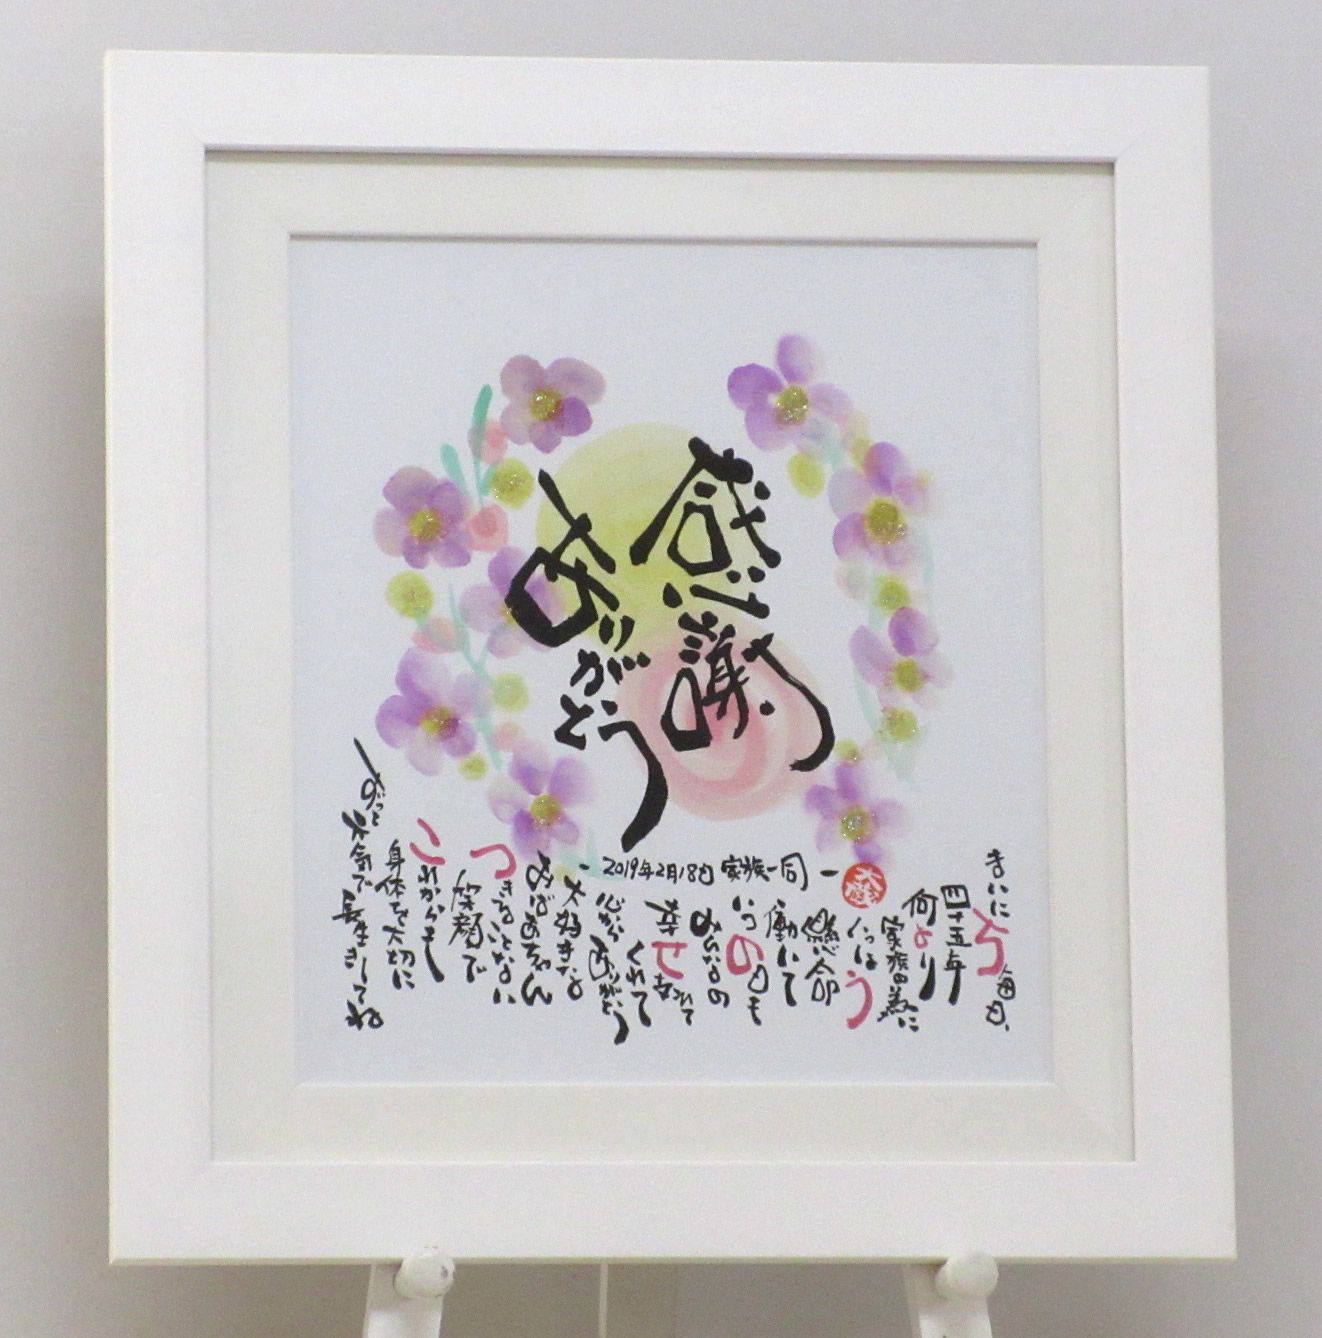 感謝
ありがとう
-2019年2月18日 家族一同-
まいにち毎日、
四十五年
何より
家族の為に
いっしょう
懸命
働いて
いつの日も
みんなの
幸せ
くれて
心から ありがとう
大好きな
おばあちゃん
つきることない
笑顔で
これからも
身体を大切に
ずっと元気で
長生きしてね